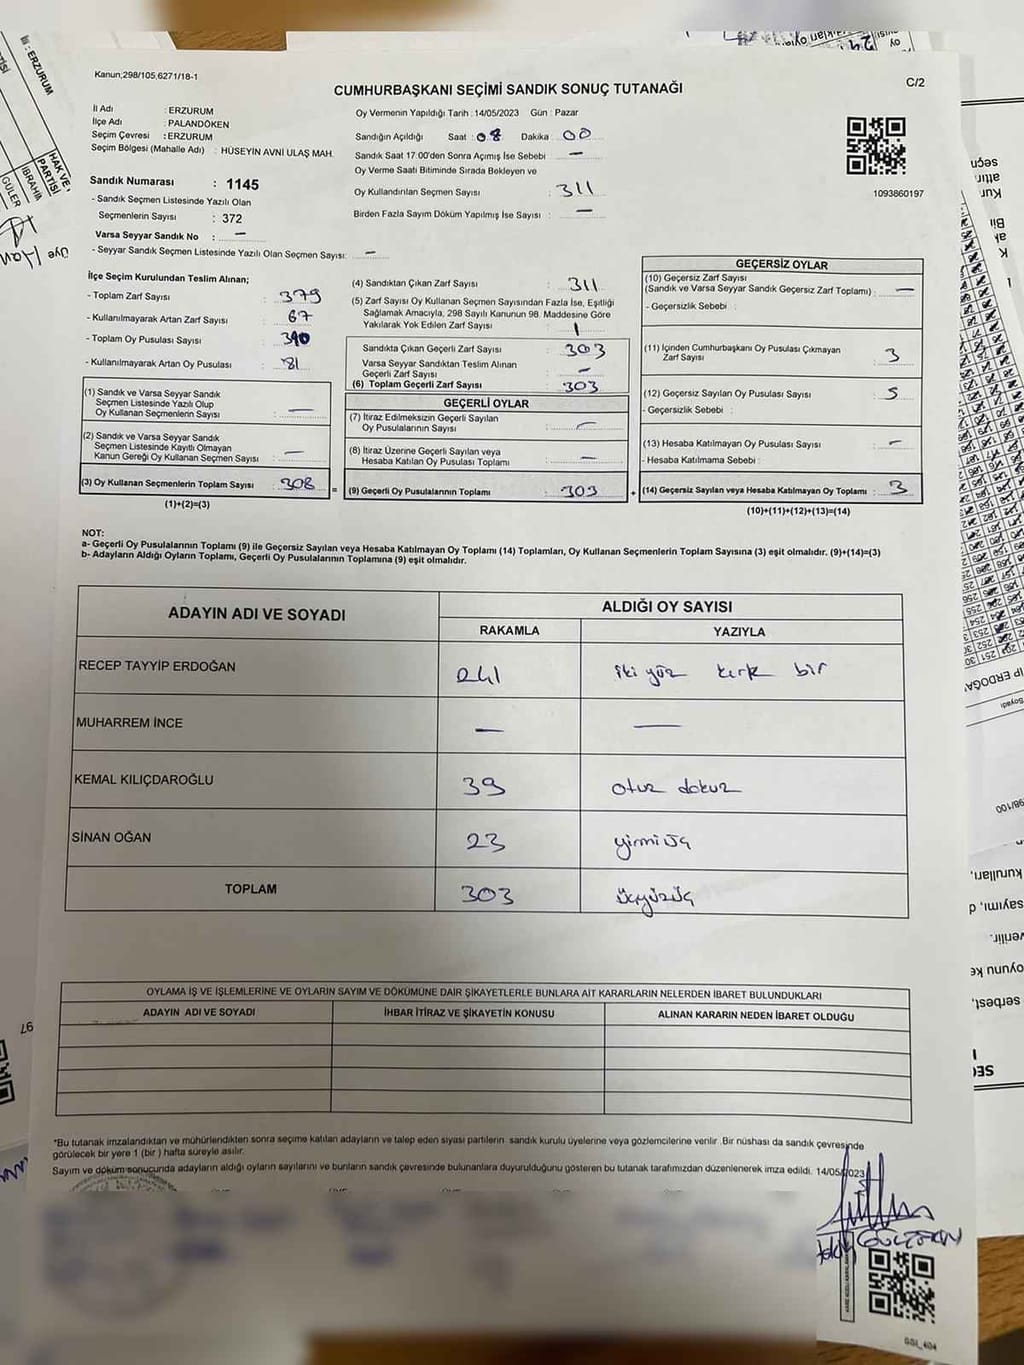 Kanun,298/105,6271/18-1
C/2
CUMHURBAŞKANI SEÇİMİ SANDIK SONUÇ TUTANAĞI
İl Adı : ERZURUM
İlçe Adı : PALANDÖKEN
Seçim Çevresi : ERZURUM
Seçim Bölgesi (Mahalle Adı) : HÜSEYİN AVNİ ULAŞ MAH.
Sandık Numarası : 1145
- Sandık Seçmen Listesinde Yazılı Olan
Seçmenlerin Sayısı : 372
Varsa Seyyar Sandık No : —
- Seyyar Sandık Seçmen Listesinde Yazılı Olan Seçmen Sayısı: —
Oy Vermenin Yapıldığı Tarih : 14/05/2023 Gün : Pazar
Sandığın Açıldığı Saat : 08 Dakika : 00
Sandık Saat 17:00'den Sonra Açımış İse Sebebi —
Oy Verme Saati Bitiminde Sırada Bekleyen ve
Oy Kullandırılan Seçmen Sayısı : 311
Birden Fazla Sayım Döküm Yapılmış İse Sayısı : —
1093860197
İlçe Seçim Kurulundan Teslim Alınan;
- Toplam Zarf Sayısı : 379
- Kullanılmayarak Artan Zarf Sayısı : 67
- Toplam Oy Pusulası Sayısı : 390
- Kullanılmayarak Artan Oy Pusulası : 81
(1) Sandık ve Varsa Seyyar Sandık
Seçmen Listesinde Yazılı Olup
Oy Kullanan Seçmenlerin Sayısı : —
(2) Sandık ve Varsa Seyyar Sandık
Seçmen Listesinde Kayıtlı Olmayan
Kanun Gereği Oy Kullanan Seçmen Sayısı : —
(3) Oy Kullanan Seçmenlerin Toplam Sayısı : 308
(1)+(2)=(3)
(4) Sandıktan Çıkan Zarf Sayısı : 311
(5) Zarf Sayısı Oy Kullanan Seçmen Sayısından Fazla İse, Eşitliği
Sağlamak Amacıyla, 298 Sayılı Kanunun 98. Maddesine Göre
Yakılarak Yok Edilen Zarf Sayısı : 1
Sandıkta Çıkan Geçerli Zarf Sayısı : 303
Varsa Seyyar Sandıktan Teslim Alınan
Geçerli Zarf Sayısı : —
(6) Toplam Geçerli Zarf Sayısı : 303
GEÇERLİ OYLAR
(7) İtiraz Edilmeksizin Geçerli Sayılan
Oy Pusulalarının Sayısı : —
(8) İtiraz Üzerine Geçerli Sayılan veya
Hesaba Katılan Oy Pusulası Toplamı : —
= (9) Geçerli Oy Pusulalarının Toplamı : 303 +
GEÇERSİZ OYLAR
(10) Geçersiz Zarf Sayısı
(Sandık ve Varsa Seyyar Sandık Geçersiz Zarf Toplamı) : —
- Geçersizlik Sebebi :
(11) İçinden Cumhurbaşkanı Oy Pusulası Çıkmayan
Zarf Sayısı : 3
(12) Geçersiz Sayılan Oy Pusulası Sayısı : 5
- Geçersizlik Sebebi :
(13) Hesaba Katılmayan Oy Pusulası Sayısı : —
- Hesaba Katılmama Sebebi :
(14) Geçersiz Sayılan veya Hesaba Katılmayan Oy Toplamı : 3
(10)+(11)+(12)+(13)=(14)
NOT:
a- Geçerli Oy Pusulalarının Toplamı (9) ile Geçersiz Sayılan veya Hesaba Katılmayan Oy Toplamı (14) Toplamları, Oy Kullanan Seçmenlerin Toplam Sayısına (3) eşit olmalıdır. (9)+(14)=(3)
b- Adayların Aldığı Oyların Toplamı, Geçerli Oy Pusulalarının Toplamına (9) eşit olmalıdır.
ADAYIN ADI VE SOYADI ALDIĞI OY SAYISI
RAKAMLA YAZIYLA
RECEP TAYYİP ERDOĞAN 241 iki yüz kırk bir
MUHARREM İNCE — —
KEMAL KILIÇDAROĞLU 39 otuz dokuz
SİNAN OĞAN 23 yirmi üç
TOPLAM 303 üçyüzüç
OYLAMA İŞ VE İŞLEMLERİNE VE OYLARIN SAYIM VE DÖKÜMÜNE DAİR ŞİKAYETLERLE BUNLARA AİT KARARLARIN NELERDEN İBARET BULUNDUKLARI
ADAYIN ADI VE SOYADI İHBAR İTİRAZ VE ŞİKAYETİN KONUSU ALINAN KARARIN NEDEN İBARET OLDUĞU
*Bu tutanak imzalandıktan ve mühürlendikten sonra seçime katılan adayların ve talep eden siyasi partilerin sandık kurulu üyelerine veya gözlemcilerine verilir .Bir nüshası da sandık çevresinde
görülecek bir yere 1 (bir ) hafta süreyle asılır.
Sayım ve döküm sonucunda adayların aldığı oyların sayılarını ve bunların sandık çevresinde bulunanlara duyurulduğunu gösteren bu tutanak tarafımızdan düzenlenerek imza edildi. 14/05/2023
GSI_404